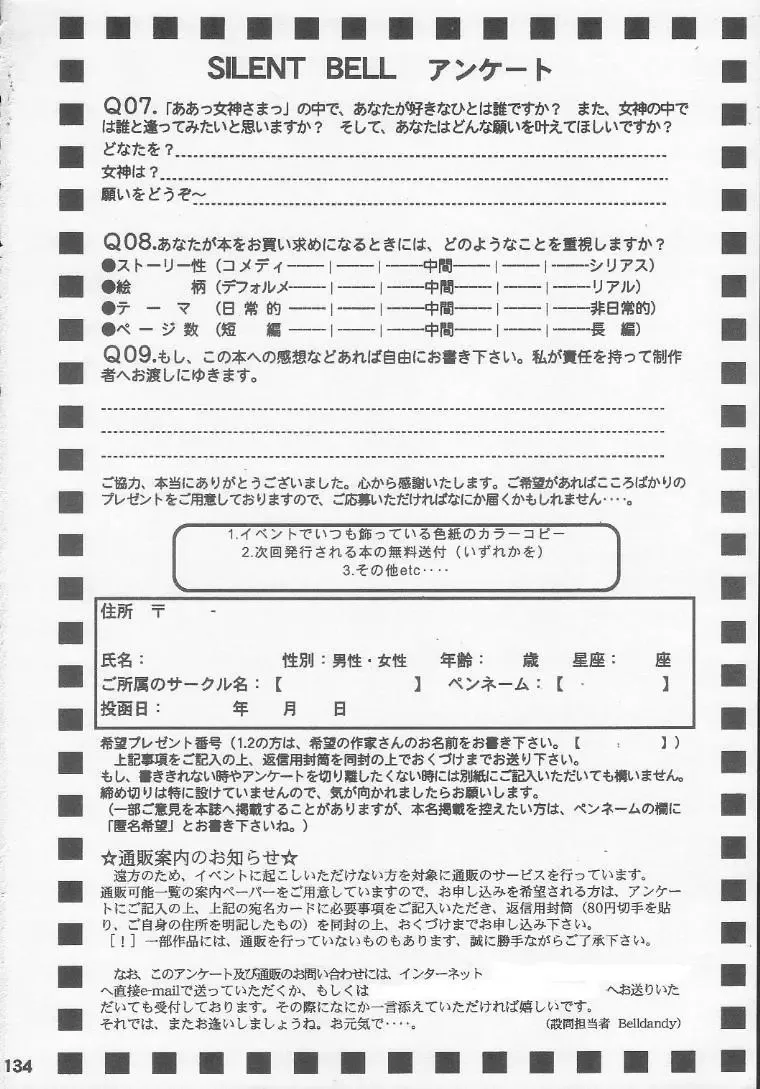 SILENT BELL アンケート
Q07.「ああっ女神さまっ」の中で、あなたが好きなひとは誰ですか？　また、女神の中で
は誰と逢ってみたいと思いますか？　そして、あなたはどんな願いを叶えてほしいですか？
どなたを？
女神は？
願いをどうぞ〜
Q08.あなたが本をお買い求めになるときには、どのようなことを重視しますか？
●ストーリー性（コメディ———|———|———中間———|———|———シリアス）
●絵　　　柄（デフォルメ———|———|———中間———|———|———リアル）
●テ　ー　マ（日 常 的 ———|———|———中間———|———|———非日常的）
●ページ数（短　　編 ———|———|———中間———|———|———長　編）
Q09.もし、この本への感想などあれば自由にお書き下さい。私が責任を持って制作
者へお渡しにゆきます。
ご協力、本当にありがとうございました。心から感謝いたします。ご希望があればこころばかりの
プレゼントをご用意しておりますので、ご応募いただければなにか届くかもしれません････。
1.イベントでいつも飾っている色紙のカラーコピー
2.次回発行される本の無料送付（いずれかを）
3.その他etc････
住所　〒　　-
氏名：　　　性別：男性・女性　　年齢：　　歳　　星座：　　座
ご所属のサークル名：【　　　　　】　ペンネーム：【　・　　　】
投函日：　　　年　　月　　日
希望プレゼント番号（1.2の方は、希望の作家さんのお名前をお書き下さい。【　　：　　】）
　上記事項をご記入の上、返信用封筒を同封の上でおくづけまでお送り下さい。
もし、書ききれない時やアンケートを切り離したくない時には別紙にご記入いただいても構いません。
締め切りは特に設けていませんので、気が向かれましたらお願いします。
（一部ご意見を本誌へ掲載することがありますが、本名掲載を控えたい方は、ペンネームの欄に
「匿名希望」とお書き下さいね。）
☆通販案内のお知らせ☆
　遠方のため、イベントに起こしいただけない方を対象に通販のサービスを行っています。
通販可能一覧の案内ペーパーをご用意していますので、お申し込みを希望される方は、アンケー
トにご記入の上、上記の宛名カードに必要事項をご記入いただき、返信用封筒（80円切手を貼
り、ご自身の住所を明記したもの）を同封の上、おくづけまでお申し込み下さい。
［！］一部作品には、通販を行っていないものもあります、誠に勝手ながらご了承下さい。
　なお、このアンケート及び通販のお問い合わせには、インターネット
へ直接e-mailで送っていただくか、もしくは　　　　　　へお送りいた
だいても受付しております。その際になにか一言添えていただければ嬉しいです。
それでは、またお逢いしましょうね。お元気で････。　　　（設問担当者 Belldandy）
134